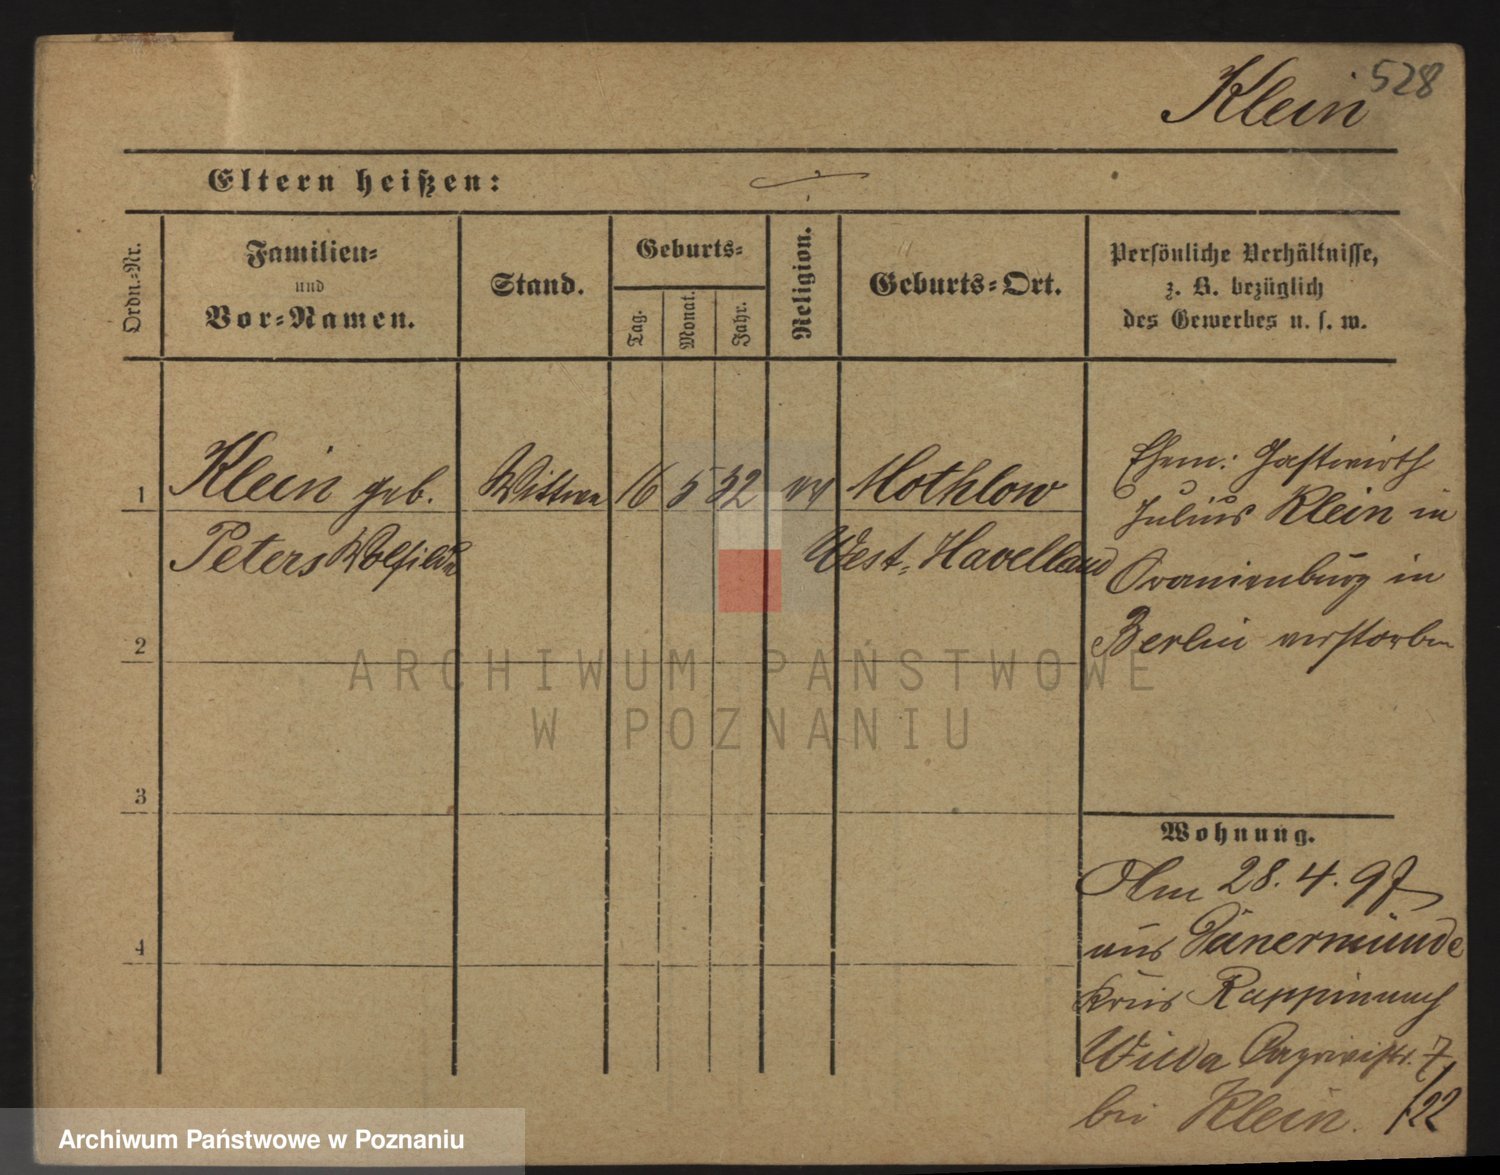 Klein 528
Eltern heißen:
Ordn.-Nr.
Familien-
und
Vor-Namen.
Stand.
Geburts-
Tag.
Monat.
Jahr.
Religion.
Geburts-Ort.
Persönliche Verhältnisse,
z. B. bezüglich
des Gewerbes u. s. w.
1 Klein geb. Wittwe 16 5 32 ev Mothlow
Peters West-Havelland
Ehem: Gastwirth
Julius Klein in
Oranienburg in
Berlin verstorben
2
3
4
Wohnung.
28. 4. 97
aus
Kreis Ruppin nach
Wilda 7
bei Klein. /22
ARCHIWUM PAŃSTWOWE
W POZNANIU
Archiwum Państwowe w Poznaniu